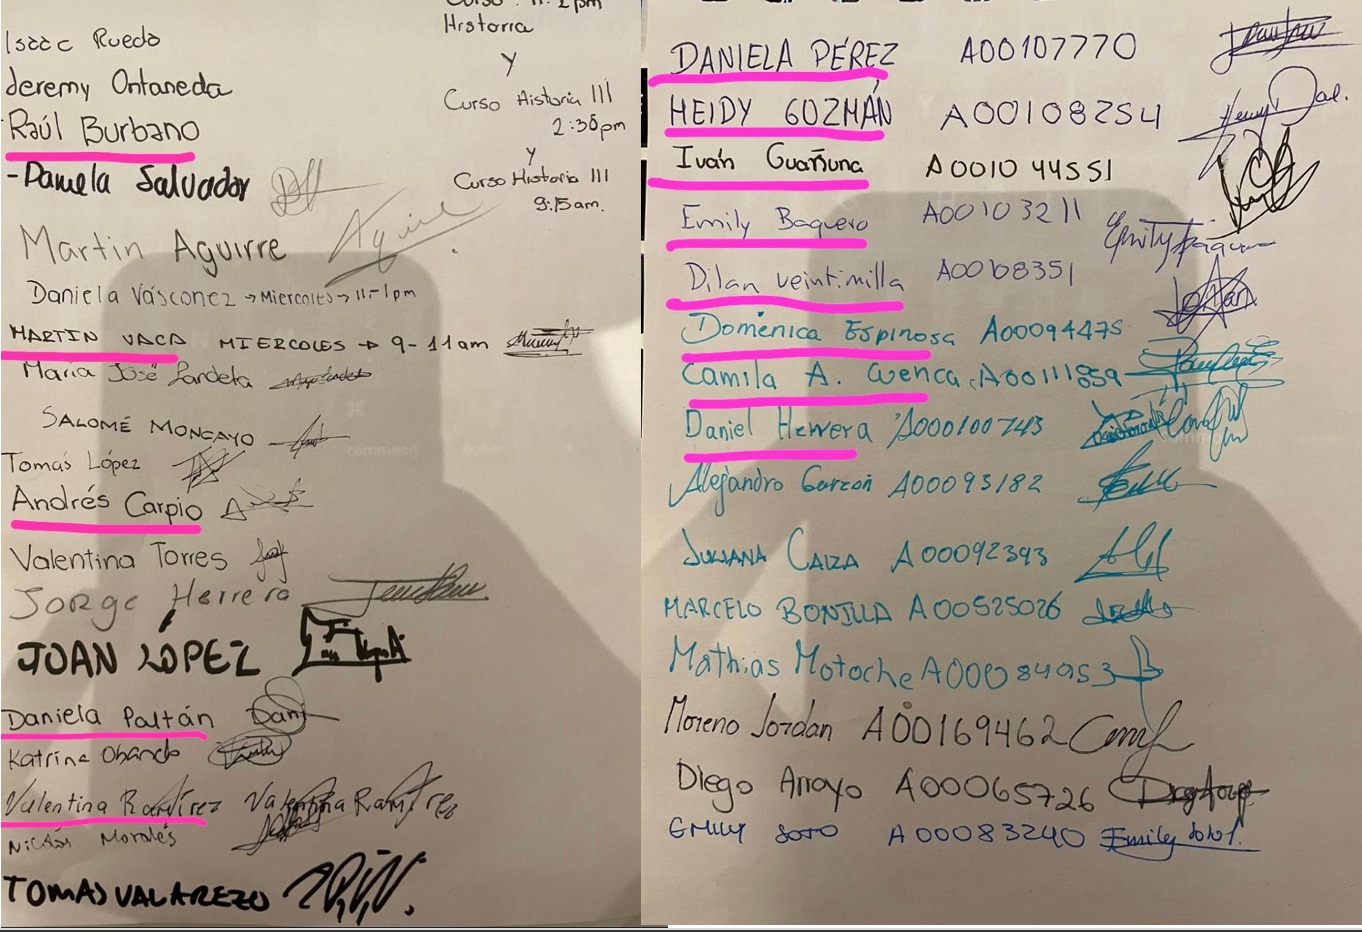 Curso : 11:-1pm
Historia
y
Curso Historia III
2:30pm
y
Curso Historia III
9:15am.
Isaac Rueda
Jeremy Ontaneda
Raúl Burbano
-Daniela Salvador
Martin Aguirre Aguirre
Daniela Vásconez → Miercoles → 11-1pm
MARTIN VACA MIERCOLES → 9-11am
María José Landeta
SALOMÉ MONCAYO
Tomás López
Andrés Carpio
Valentina Torres
Jorge Herrera
JUAN LÓPEZ
Daniela Paltán Dani
Katrina Obando
Valentina Ramírez Valentina Ramírez
Nicolás Morales
TOMAS VALAREZO
DANIELA PÉREZ A00107770
HEIDY GUZMÁN A00108254
Iván Guañuna A001044551
Emily Baquero A00103211 Emily Baquero
Dilan Veintimilla A00108351
Doménica Espinosa A00094475
Camila A. Cuenca A00111859
Daniel Herrera A000100743
Alejandro Garzón A00093182
JULIANA CAIZA A00092393
MARCELO BONILLA A00525026
Mathias Motoche A00084953
Moreno Jordan A00169462
Diego Arroyo A00065726 Diego Arroyo
EMILY SOTO A00083240 Emily Soto